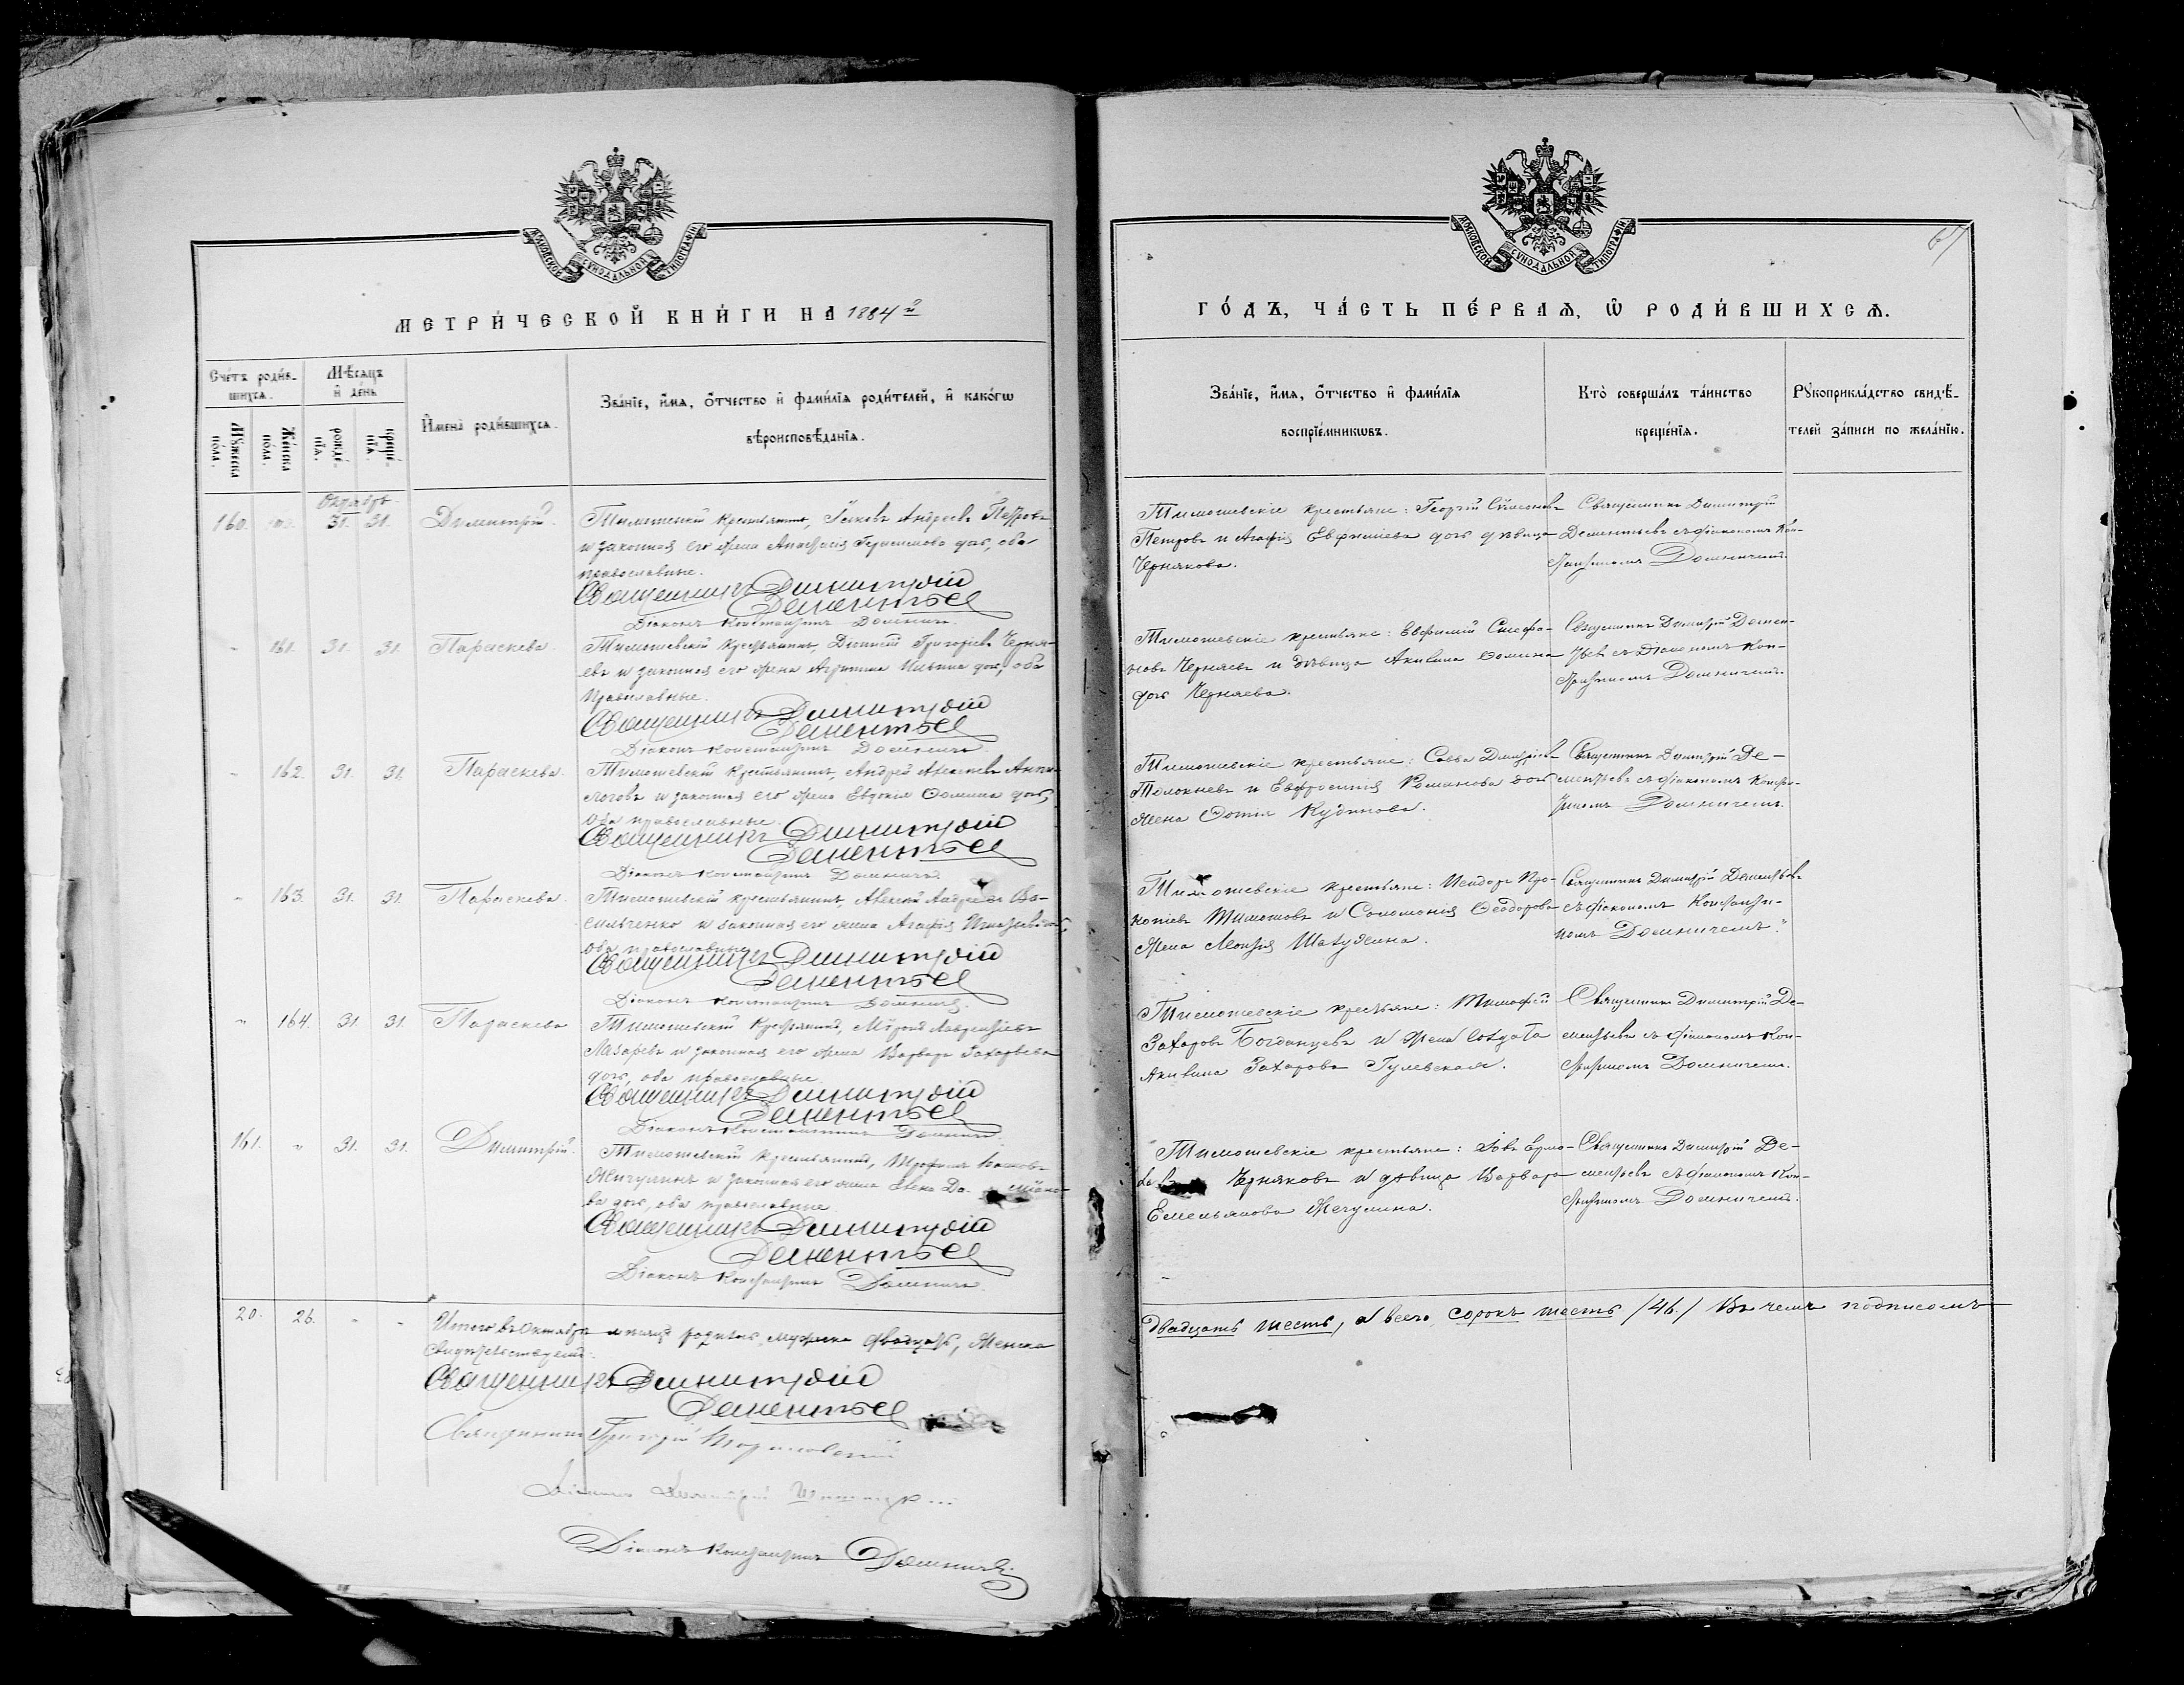 МОСКОВСКОЙ СѴНОДАЛЬНОЙ ТИПОГРАФІИ
МЕТРИ́ЧЕСКОЙ КНИ́ГИ НА 1884й
Сче́тъ роди́в-
шихсѧ.
Мѣ́сѧцъ
и҆ де́нь
Мꙋ́жеска по́ла.
Же́нска по́ла.
рожде́-
нїѧ.
креще́-
нїѧ.
И҆мена̀ роди́вшихсѧ.
Зва́нїе, и҆́мѧ, ѻ҆́тчество и҆ фамилїѧ роди́телей, и҆ како́гѡ
вѣроисповѣ́данїѧ.
Октябрь
160. 31. 31. Димитрій.
Тимошевскій крестьянинъ, Іаковъ Андреевъ Петровъ
и законная его жена Анастасія Герасимова дочь, оба
православные.
Священникъ Димитрій
Дементьев
Діаконъ Константинъ Домничъ.
" 161. 31. 31. Параскева.
Тимошевскій крестьянинъ, Діонисій Григорьевъ Черня-
евъ и законная его жена Агрипина Ильина дочь, оба
православные.
Священникъ Димитрій
Дементьев
Діаконъ Константинъ Домничъ.
" 162. 31. 31. Параскева.
Тимошевскій крестьянинъ, Андрей Алексеевъ
и законная его жена Евдокія Ѳомина дочь,
оба православные.
Священникъ Димитрій
Дементьев
Діаконъ Константинъ Домничъ.
" 163. 31. 31. Параскева.
Тимошевскій крестьянинъ, Алексій Андреевъ Ва-
сильченко и законная его жена Агафія
оба православные.
Священникъ Димитрій
Дементьев
Діаконъ Константинъ Домничъ.
" 164. 31. 31. Параскева
Тимошевскій крестьянинъ, Лаврентіевъ
Лазаревъ и законная его жена Варвара Захарьева
дочь, оба православные.
Священникъ Димитрій
Дементьев
Діаконъ Константинъ Домничъ.
161. " 31. 31. Димитрій.
Тимошевскій крестьянинъ, Трофимъ
и законная его жена Елена
ва дочь, оба православные
Священникъ Димитрій
Дементьев
Діаконъ Константинъ Домничъ
20. 26. " "
Итого въ Октябрѣ мѣсяцѣ родилось мужеска двадцать, женска
свидѣтельствуемъ:
Священникъ Димитрій
Дементьев
Священникъ Григорій
Діаконъ Димитрій
Діаконъ Константинъ Домничъ.
67
ГО́ДЪ, ЧА́СТЬ ПЕ́РВАѦ, Ѡ҆ РОДИ́ВШИХСѦ.
Зва́нїе, и҆́мѧ, ѻ҆́тчество и҆ фамилїѧ
воспрїе́мникѡвъ.
Кто̀ соверша́лъ та́инство
креще́нїѧ.
Рꙋкоприкла́дство свидѣ́-
телей за́писи по жела́нїю.
Тимошевскіе крестьяне: Георгій Симеоновъ
Петровъ и Агафія Евфиміева дочь дѣвица
Чернякова.
Священникъ Димитрій
Дементьевъ съ діакономъ Кон-
стантиномъ Домничемъ.
Тимошевскіе крестьяне: Евфимій Стефа-
новъ Черняевъ и дѣвица Акилина Ѳомина
дочь Черняева.
Священникъ Димитрій Демен-
тьевъ съ Діакономъ Кон-
стантиномъ Домничемъ.
Тимошевскіе крестьяне: Савва Димитріевъ
Толокневъ и Евфросинія Романова дочь
жена Фотія Кудинова.
Священникъ Димитрій Де-
ментьевъ съ діакономъ Констан-
тиномъ Домничемъ.
Тимошевскіе крестьяне: Исидоръ Про-
копіевъ Тимошовъ и Соломонія Ѳеодорова
жена
Священникъ Димитрій Дементьевъ
съ діакономъ Константи-
номъ Домничемъ."
Тимошевскіе крестьяне: Тимофей
Захаровъ Богданцевъ и жена солдата
Акилина Захарова Гулевская.
Священникъ Димитрій Де-
ментьевъ съ діакономъ Кон-
стантиномъ Домничемъ.
Тимошевскіе крестьяне: Іовъ
Черняковъ и дѣвица Варвара
Емельянова Жегулина.
Священникъ Димитрій Де-
ментьевъ съ діакономъ Кон-
стантиномъ Домничемъ.
двадцать шесть, а всего сорокъ шесть /46./ Въ чемъ подписомъ